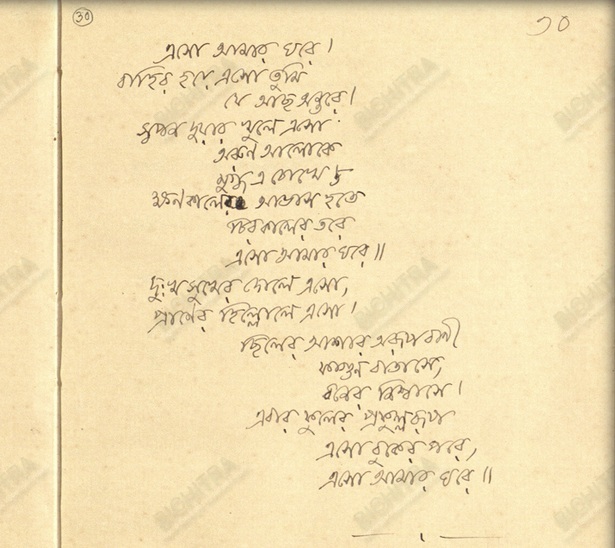 30
৩০
এসো আমার ঘরে।
বাহির হয়ে এসো তুমি
যে আছ অন্তরে।
স্বপন দুয়ার খুলে এসো
অরুণ আলোকে
মুগ্ধ এ চোখে
ক্ষণকালের আভাস হতে
চিরকালের তরে
এসো আমার ঘরে॥
দুঃখসুখের দোলে এসো,
প্রাণের হিল্লোলে এসো।
ছিলে আশার অরূপবাণী
ফাগুন বাতাসে,
বনের নিশ্বাসে।
এবার ফুলের প্রফুল্লরূপ
এসো বুকের পরে,
এসো আমার ঘরে॥
BICHITRA